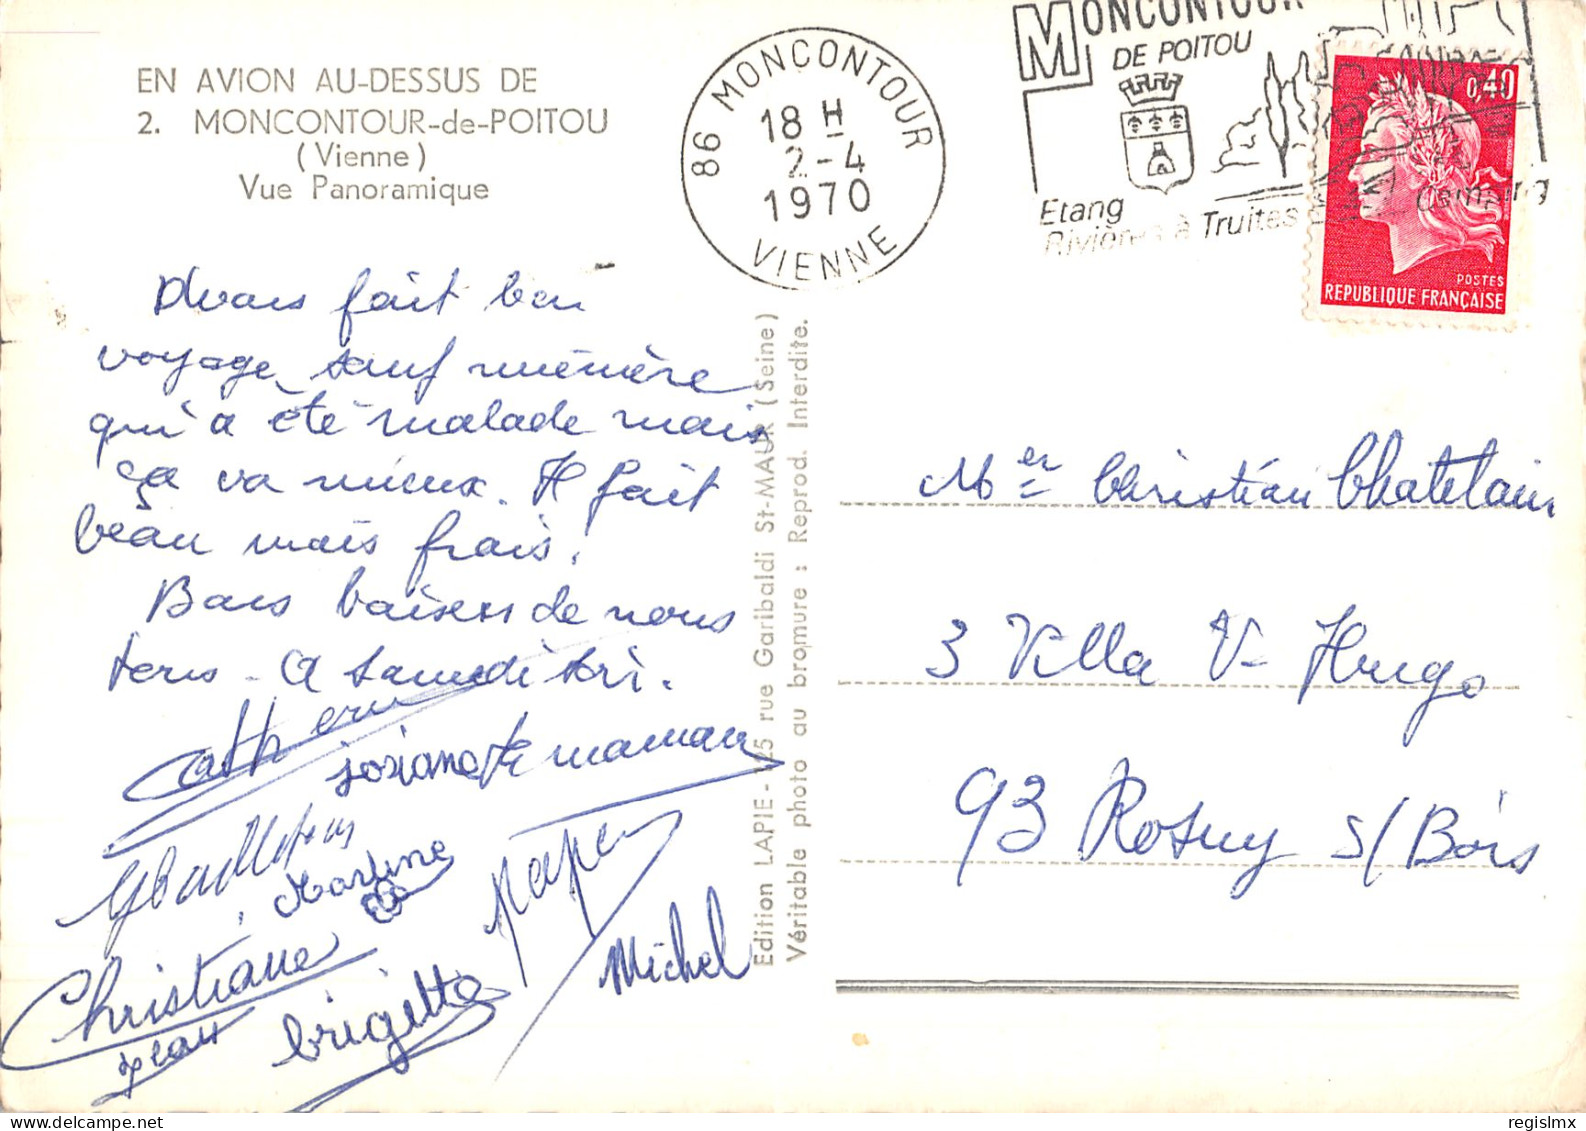 EN AVION AU-DESSUS DE
2. MONCONTOUR-de-POITOU
(Vienne)
Vue Panoramique
86 MONCONTOUR
18 H
2-4
1970
VIENNE
MONCONTOUR
DE POITOU
Etang
Rivières à Truites
Camping
0,40
POSTES
REPUBLIQUE FRANÇAISE
Avons fait bon
voyage sauf mémère
qui a été malade mais
ça va mieux. Il fait
beau mais frais.
Bons baisers de nous
tous - A samedi soir.
Catherine
josiane ta maman
Martine
papa
Michel
Christiane
brigitte
jean
Edition LAPIE - 125 rue Garibaldi St-MAUR (Seine)
Véritable photo au bromure : Reprod. Interdite.
Mer Christian Chatelain
3 Villa V- Hugo
93 Rosny s/Bois
regislmx